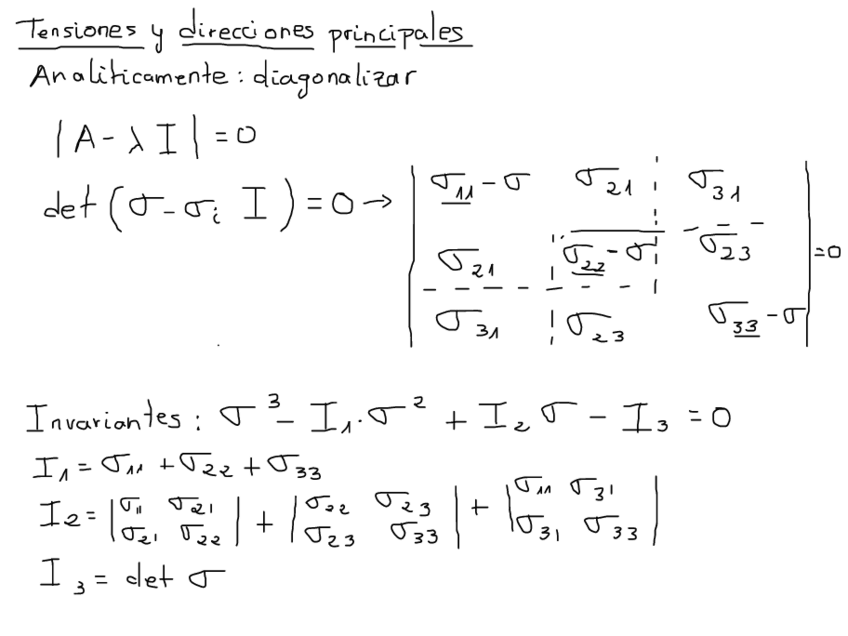 Tensiones y direcciones principales
Analíticamente: diagonalizar
|A - λ I| = 0
det (σ - σᵢ I) = 0 → | σ₁₁ - σ σ₂₁ σ₃₁ |
| σ₂₁ σ₂₂ - σ σ₂₃ | = 0
| σ₃₁ σ₂₃ σ₃₃ - σ |
Invariantes: σ³ - I₁·σ² + I₂ σ - I₃ = 0
I₁ = σ₁₁ + σ₂₂ + σ₃₃
I₂ = | σ₁₁ σ₂₁ | + | σ₂₂ σ₂₃ | + | σ₁₁ σ₃₁ |
| σ₂₁ σ₂₂ | | σ₂₃ σ₃₃ | | σ₃₁ σ₃₃ |
I₃ = det σ